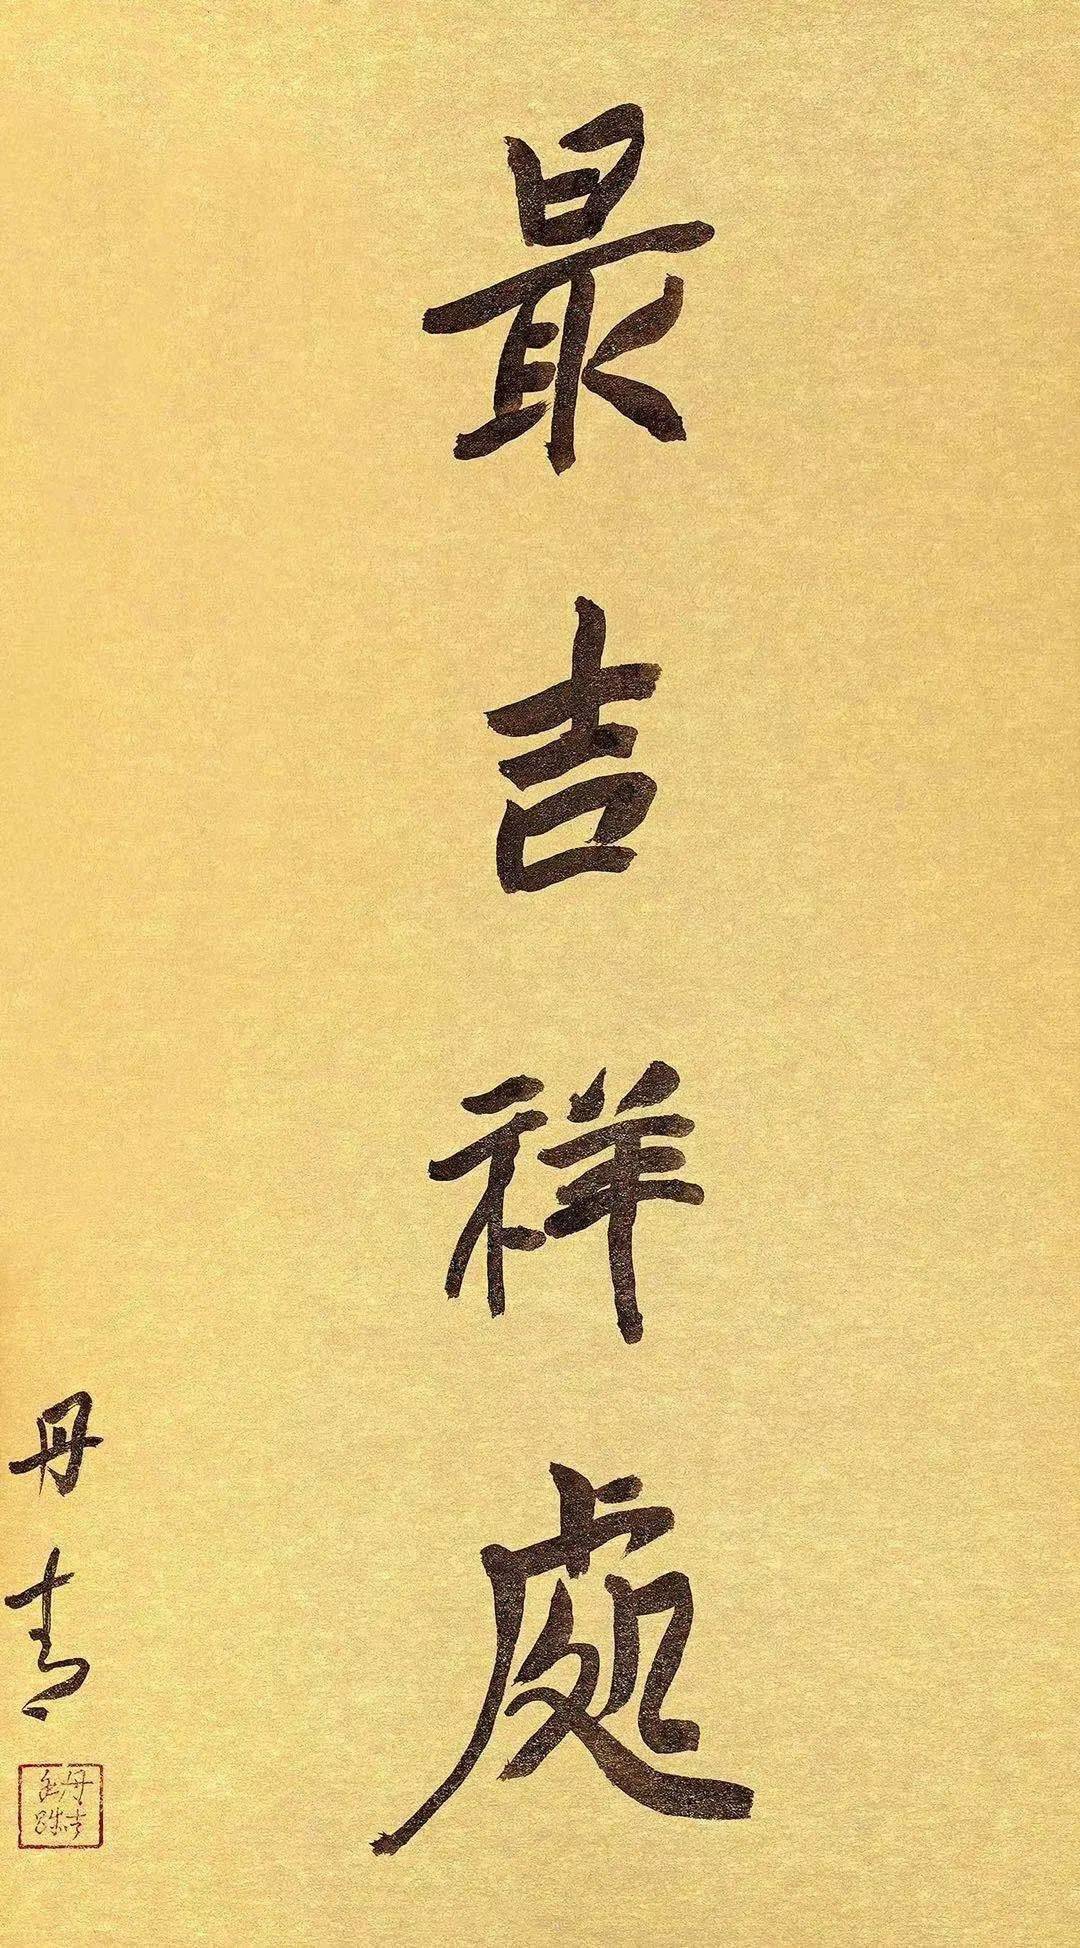 最吉祥處
丹青